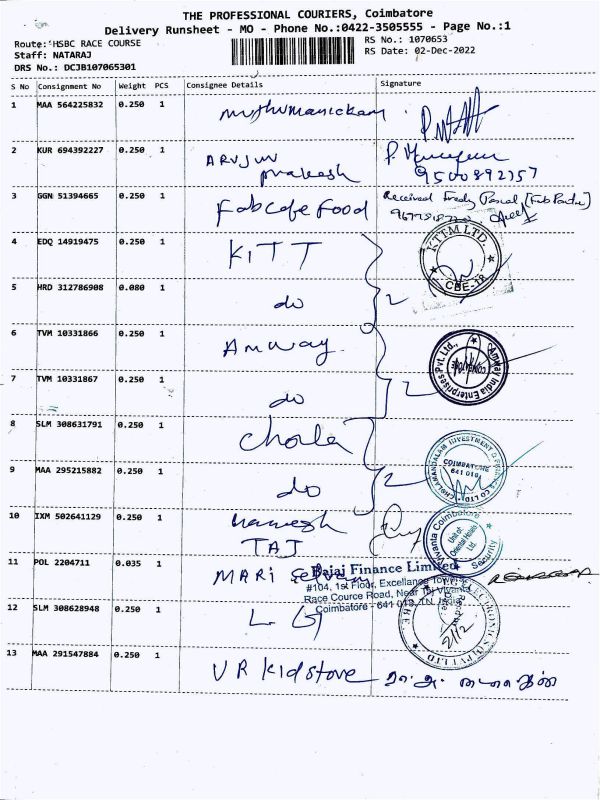 THE PROFESSIONAL COURIERS, Coimbatore
Delivery Runsheet - MO - Phone No.:0422-3505555 - Page No.:1
Route: HSBC RACE COURSE
RS No.: 1070653
Staff: NATARAJ
RS Date: 02-Dec-2022
DRS No.: DCJB107065301
S No Consignment No Weight PCS Consignee Details Signature
1 MAA 564225832 0.250 1 muthumanickam
2 KUR 694392227 0.250 1 ARUJUN prakash
9500892757
3 GGN 51394665 0.250 1 Fabcafe Food Received
4 EDQ 14919475 0.250 1 KITT
KTTM LTD. CBE-18
5 HRD 312786908 0.080 1 do 2
6 TVM 10331866 0.250 1 Amway
Amway India Enterprises Pvt. Ltd.,
7 TVM 10331867 0.250 1 do 2
8 SLM 308631791 0.250 1 Chola
CHOLAMANDALAM INVESTMENT & FINANCE CO LTD
COIMBATORE
641 018
9 MAA 295215882 0.250 1 do 2
10 IXM 502641129 0.250 1 TAJ
Vivanta Coimbatore
Unit of:
Oriental Hotels
Ltd.
11 POL 2204711 0.035 1 MARi Selvam
Bajaj Finance Limited
#104, 1st Floor, Excellance Towers
Race Cource Road, Near Taj Vivanta
Coimbatore - 641 018, TN, India
12 SLM 308628948 0.250 1 LG
LG ELECTRONICS (I) PVT LTD
2/12
13 MAA 291547884 0.250 1 UR Kidstove